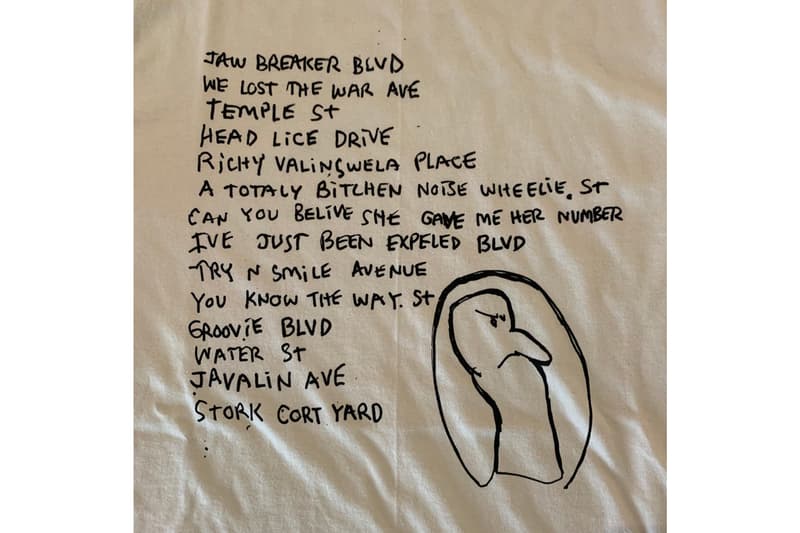 JAW BREAKER BLVD
WE LOST THE WAR AVE
TEMPLE St
HEAD LiCE DRiVE
RiCHY VALiNSWELA PLACE
A TOTALY BiTCHEN NOiSE WHEELiE. St
CAN YOU BELiVE SHE GAVE ME HER NUMBER
I'VE JUST BEEN EXPELED BLVD
TRY N SMiLE AVENUE
YOU KNOW THE WAY. St
GROOViE BLVD
WATER St
JAVALiN AVE
STORK CORT YARD